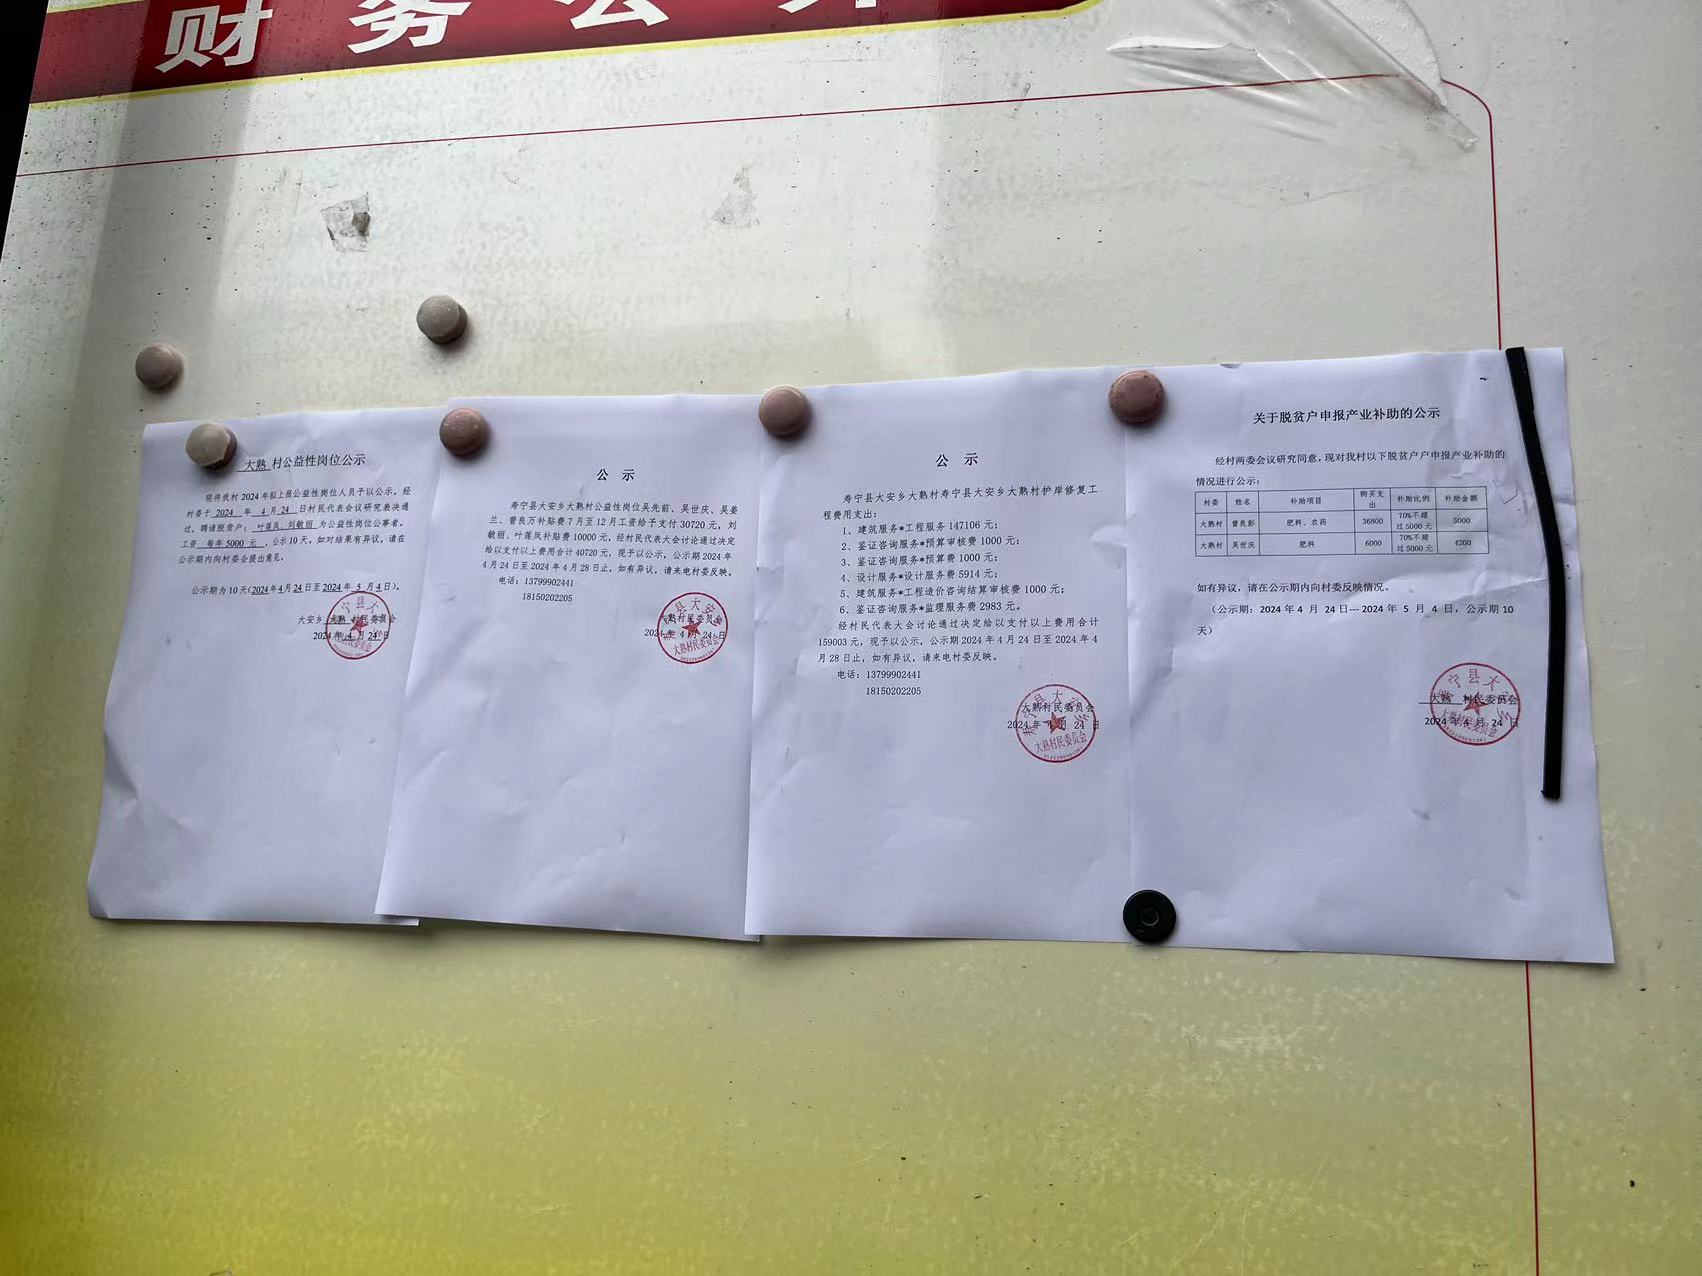 财务公开
大熟 村公益性岗位公示
现将我村2024年拟上报公益性岗位人员予以公示，经
村委于 2024 年 4 月 24 日村民代表会议研究表决通
过，聘请脱贫户：叶莲凤、刘敏丽 为公益性岗位公事者。
工资 每年5000元 ，公示10天。如对结果有异议，请在
公示期内向村委会提出意见。
公示期为10天(2024年4月24日至2024年 5 月4日)。
大安乡 大熟 村民委员会
2024年 4 月 24 日
公 示
寿宁县大安乡大熟村公益性岗位吴先前、吴世庆、吴姜
兰、曾良万补贴费7月至12月工资给予支付30720元，刘
敏丽、叶莲凤补贴费10000元，经村民代表大会讨论通过决定
给以支付以上费用合计40720元，现予以公示，公示期2024年
4月24日至2024年4月28日止，如有异议，请来电村委反映。
电话：13799902441
18150202205
大熟村民委员会
2024年 4 月 24 日
大熟村民委员会
公 示
寿宁县大安乡大熟村寿宁县大安乡大熟村护岸修复工
程费用支出：
1、建筑服务*工程服务147106元；
2、鉴证咨询服务*预算审核费1000元；
3、鉴证咨询服务*预算费1000元；
4、设计服务*设计服务费5914元；
5、建筑服务*工程造价咨询结算审核费1000元；
6、鉴证咨询服务*监理服务费2983元。
经村民代表大会讨论通过决定给以支付以上费用合计
159003元，现予以公示，公示期2024年4月24日至2024年4
月28日止，如有异议，请来电村委反映。
电话：13799902441
18150202205
大熟村民委员会
2024年 4 月 24 日
大熟村民委员会
关于脱贫户申报产业补助的公示
经村两委会议研究同意，现对我村以下脱贫户户申报产业补助的
情况进行公示：
村委 姓名 补助项目 购买支出 补助比例 补助金额
大熟村 曾良彭 肥料、农药 36800 70%不超过5000元 5000
大熟村 吴世庆 肥料 6000 70%不超过5000元 4200
如有异议，请在公示期内向村委反映情况。
（公示期：2024年 4 月 24日---2024 年 5 月 4 日，公示期 10
天）
大熟 村民委员会
2024 年 4 月 24 日
大熟村民委员会